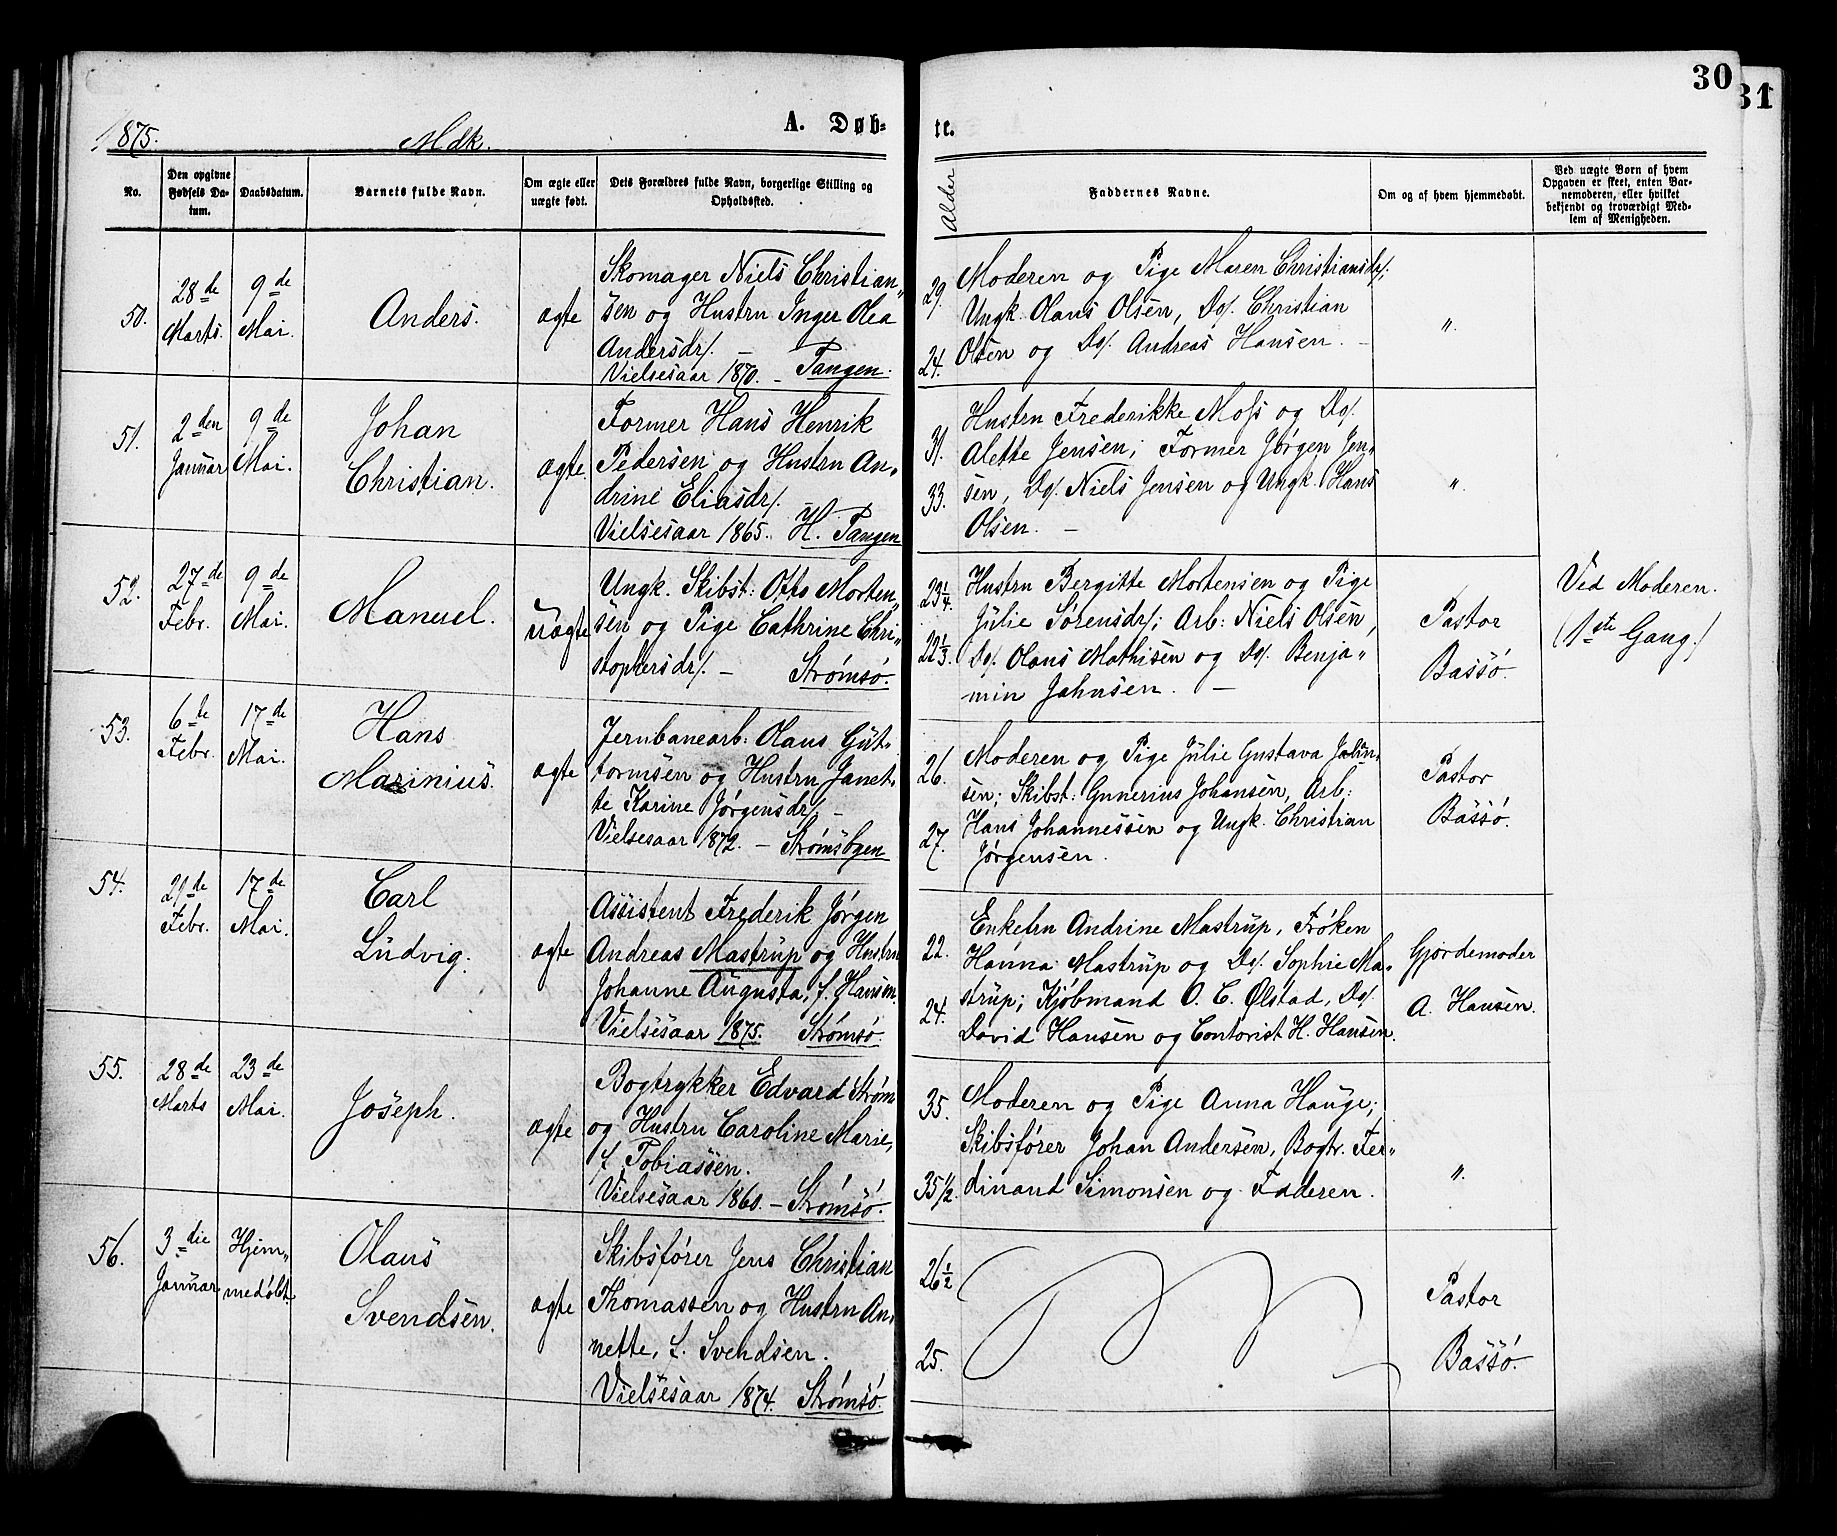 30
31
1875.
Mdk.
A. Døb-
te.
No.
Den opgivne Fødsels Da-tum.
Daabsdatum.
Barnets fulde Navn.
Om ægte eller uægte født.
Dets Forældres fulde Navn, borgerlige Stilling og Opholdssted.
Alder
Faddernes Navne.
Om og af hvem hjemmedøbt.
Ved uægte Børn af hvem Opgaven er skeet, enten Bar-nemoderen, eller hvilket bekjendt og troværdigt Med-lem af Menigheden.
50.
28de Marts.
9de Mai.
Anders.
ægte
Skomager Niels Christian„
sen og Hustru Inger Olea
Andersdr/. —
Vielsesaar 1870. — Tangen.
29.
24.
Moderen og Pige Maren Christiansdr/;
Ungk. Olaus Olsen, Do/. Christian
Olsen og Do/. Andreas Hansen. —
„.
51.
2den Januar
9de Mai.
Johan
Christian.
ægte.
Former Hans Henrik
Pedersen og Hustru An„
drine Eliasdr/.
Vielsesaar 1865. H. Tangen
31.
33.
Hustru Frederikke Moss og Do/.
Alette Jensen; Former Jørgen Jen„
sen, Do/. Niels Jensen og Ungk. Hans
Olsen. —
„.
52.
27de Febr.
9de Mai.
Manuel.
uægte
Ungk. Skibst: Otto Morten„
sen og Pige Cathrine Chri„
stophersdr/. — Strømsø.
23 1/4.
22 1/3.
Hustru Bergitte Mortensen og Pige
Julie Sørensdr/; Arb: Niels Olsen,
Do/. Olaus Mathisen og Do/. Benja„
min Jahnsen. —
Pastor
Bassø.
Ved Moderen.
(1ste Gang.)
53.
6te Febr.
17de Mai.
Hans
Marinius.
ægte
Jernbanearb: Olaus Gut„
tormsen og Hustru Janet„
te Karine Jørgensdr/. —
Vielsesaar 1872. — Strømsbgen
26.
27.
Moderen og Pige Julie Gustava Johan„
sen; Skibst: Gunerius Johansen, Arb:
Hans Johannessen og Ungk. Christian
Jørgensen.
Pastor
Bassø.
54.
21de Febr.
17de Mai.
Carl
Ludvig.
ægte
Assistent Frederik Jørgen
Andreas Mastrup og Hustru
Johanne Augusta, f. Hansen.
Vielsesaar 1875. Strømsø.
22.
24.
Enkefru Andrine Mastrup, Frøken
Hanna Mastrup og Do/. Sophie Ma„
strup; Kjøbmand O. C. Ølstad, Do/.
David Hansen og Contorist H. Hansen.
Gjordemoder
A. Hansen.
55.
28de Marts
23de Mai.
Joseph.
ægte
Bogtrykker Edvard Strøm
og Hustru Caroline Marie,
f. Tobiassen.
Vielsesaar 1860. — Strømsø.
35.
35 1/2.
Moderen og Pige Anna Hauge;
Skibsfører Johan Andersen, Bogtr. Fer„
dinand Simonsen og Faderen.
„.
56.
3die Januar.
Hjem„
medøbt.
Olaus
Svendsen.
ægte
Skibsfører Jens Christian
Thomassen og Hustru An„
nette, f. Svendsen.
Vielsesaar 1874. Strømsø.
26 1/2
25.
Pastor
Bassø.